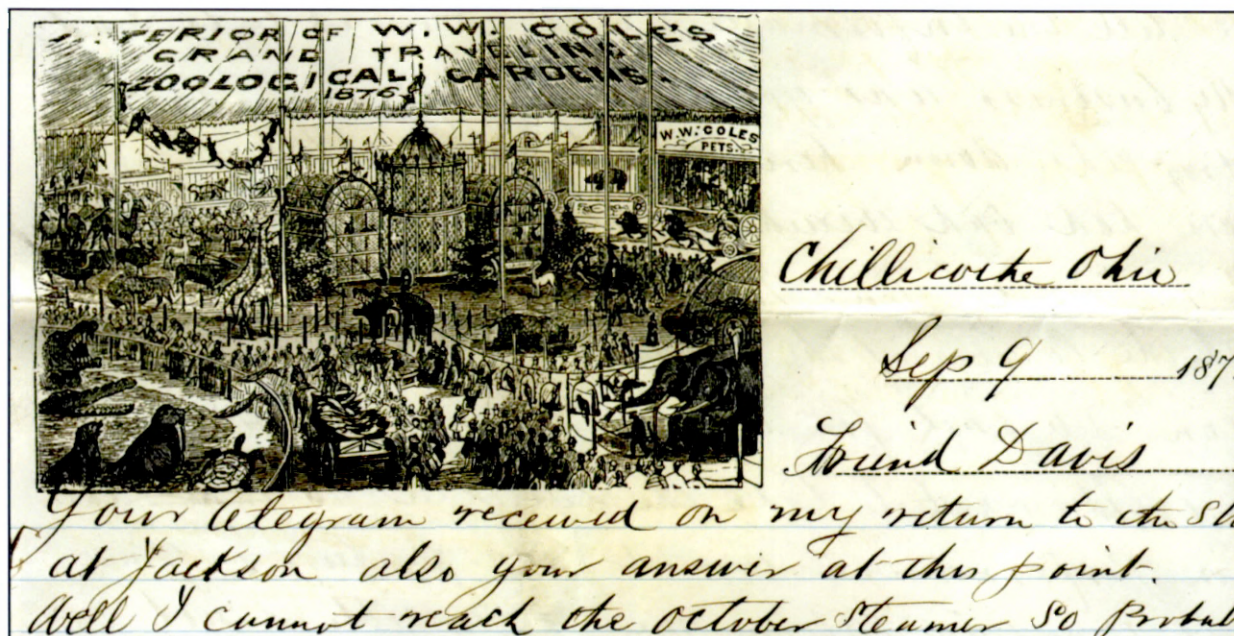 INTERIOR OF W. W. COLE'S
GRAND TRAVELING
ZOOLOGICAL GARDENS.
1876
W. W. COLES
PETS.
Chillicothe Ohio
Sep 9 187
Friend Davis
Your telegram received on my return to the
at Jackson also your answer at this point.
Well I cannot reach the October Steamer So